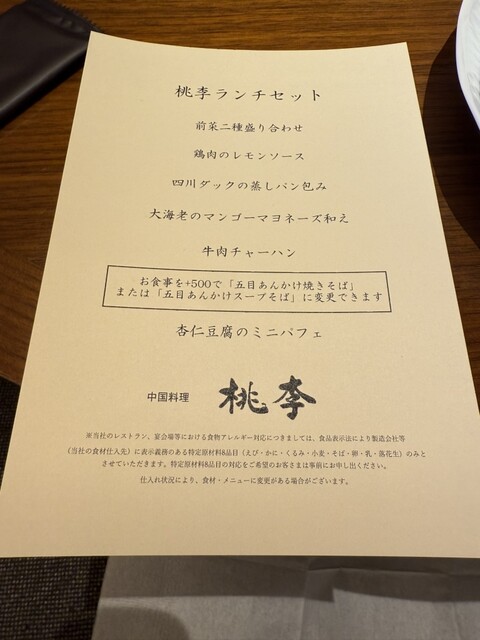 桃李ランチセット
前菜二種盛り合わせ
鶏肉のレモンソース
四川ダックの蒸しパン包み
大海老のマンゴーマヨネーズ和え
牛肉チャーハン
お食事を+500で「五目あんかけ焼きそば」
または「五目あんかけスープそば」に変更できます
杏仁豆腐のミニパフェ
中国料理 桃李
※当社のレストラン、宴会場等における食物アレルギー対応につきましては、食品表示法により製造会社等
(当社の食材仕入先)に表示義務のある特定原材料8品目(えび・かに・くるみ・小麦・そば・卵・乳・落花生)のみと
させていただきます。特定原材料8品目の対応をご希望のお客さまは事前にお申し出ください。
仕入れ状況により、食材・メニューに変更がある場合がございます。